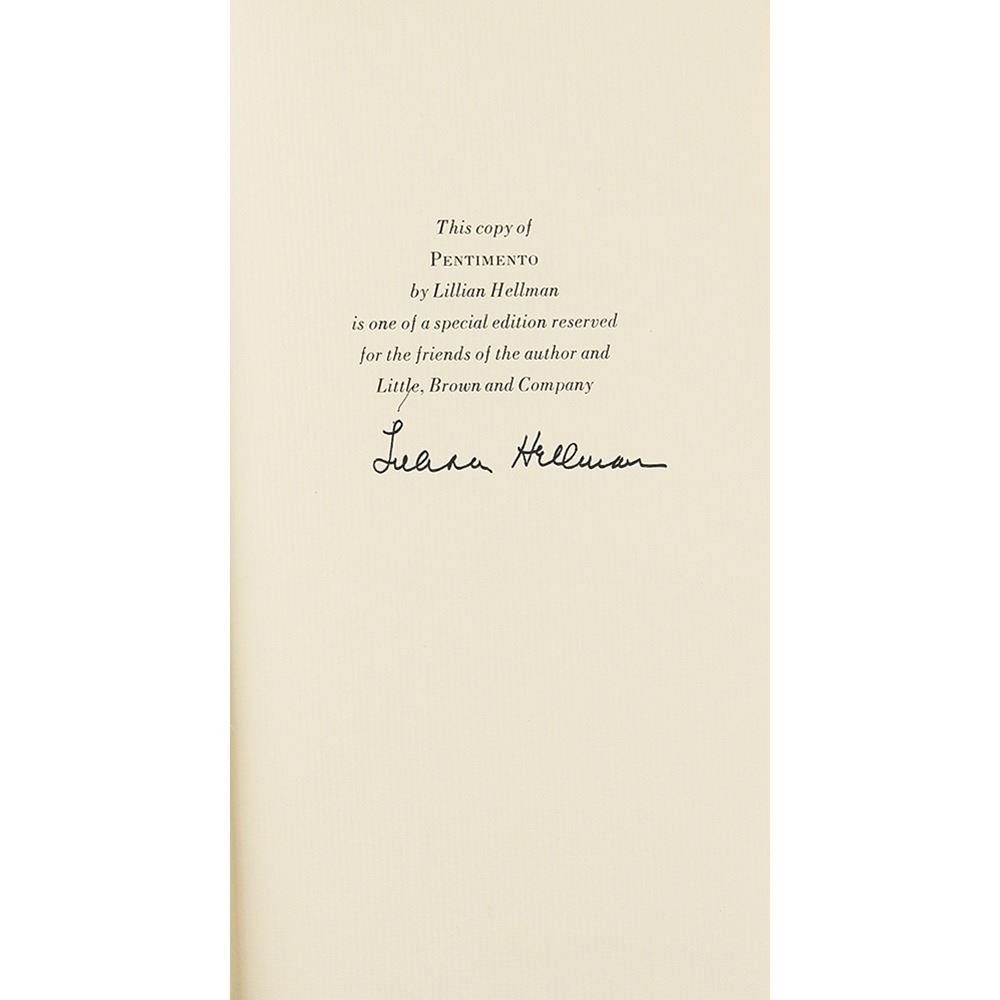 This copy of
PENTIMENTO
by Lillian Hellman
is one of a special edition reserved
for the friends of the author and
Little, Brown and Company
Lillian Hellman